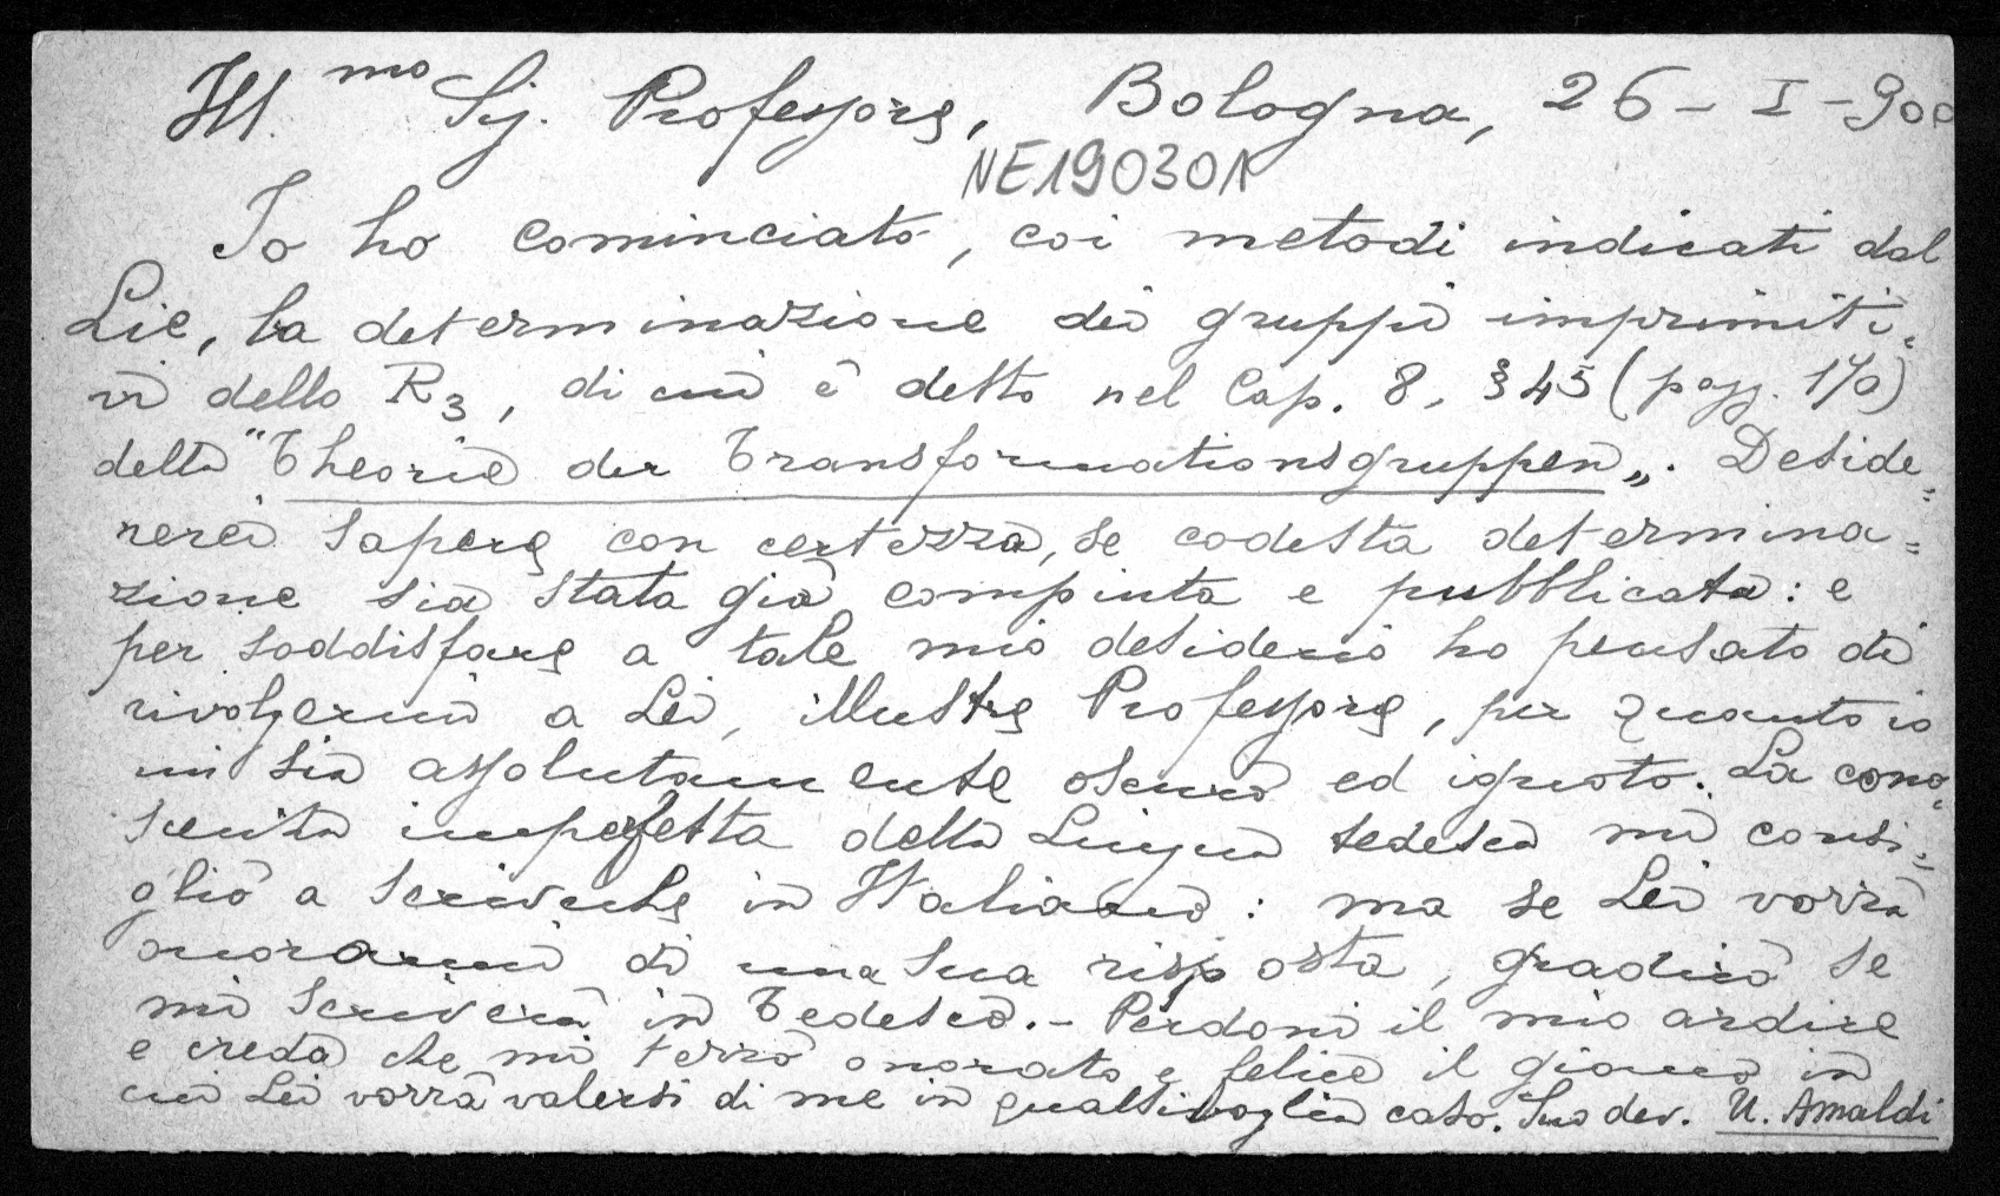 Ill.mo Sig. Professore, Bologna, 26 - I - 900
NE190301
Io ho cominciato, coi metodi indicati dal
Lie, la determinazione dei gruppi imprimiti=
vi dello R3, di cui è detto nel Cap. 8, § 45 (pagg. 170)
della "Theorie der Transformationsgruppen„. Deside=
rerei sapere con certezza, se codesta determina=
zione sia stata già compiuta e pubblicata: e
per soddisfare a tale mio desiderio ho pensato di
rivolgermi a Lei, illustre Professore, per quanto io
mi sia assolutamente oscuro ed ignoto. La cono=
scenza imperfetta della Lingua tedesca mi consi=
gliò a scriverLe in Italiano: ma se Lei vorrà
onorarmi di una Sua risposta, gradirò se
mi scriverà in Tedesco. - Perdoni il mio ardire
e creda che mi terrò onorato e felice il giorno in
cui Lei vorrà valersi di me in qualsivoglia caso. Suo dev. U. Amaldi